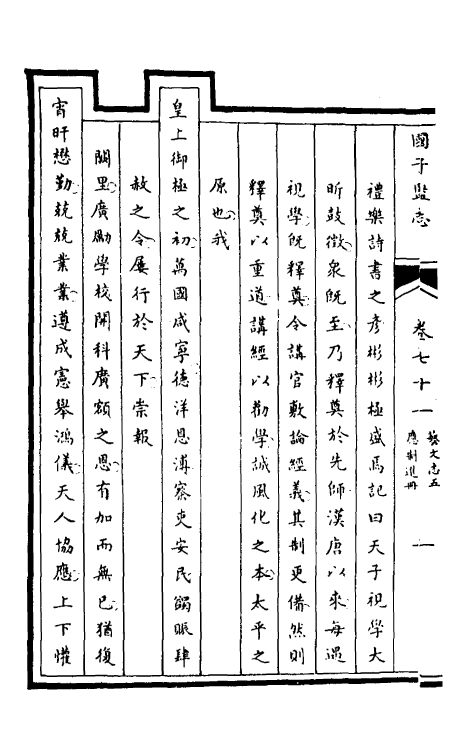 國子監志
卷七十一 藝文志五
應制進冊
一
禮樂詩書之彥彬彬極盛焉記曰天子視學大
昕鼓徵衆既至乃釋奠於先師漢唐以來每遇
視學既釋奠令講官敷論經義其制更備然則
釋奠以重道講經以勸學誠風化之本太平之
原也我
皇上御極之初萬國咸寧德洋恩溥察吏安民蠲賑肆
赦之令屢行於天下崇報
闕里廣勵學校開科廣額之恩有加而無已猶復
宵旰懋勤兢兢業業遵成憲舉鴻儀天人協應上下懽